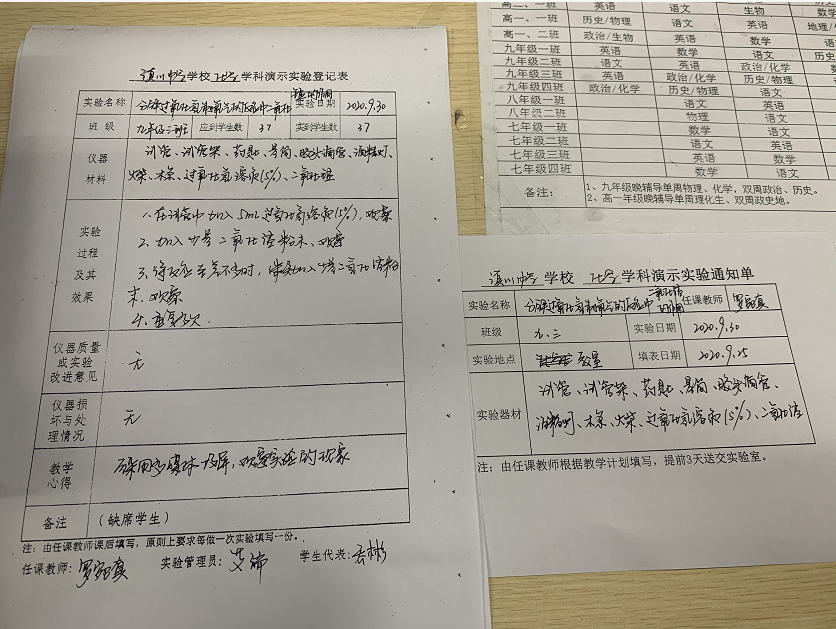 中学学校 化学学科演示实验登记表
实验名称 分解过氧化氢制氧气的反应中二氧化锰的作用 实验日期 2020.9.30
班 级 九年级三班 应到学生数 37 实到学生数 37
仪器材料
试管、试管架、药匙、量筒、胶头滴管、酒精灯、
火柴、木条、过氧化氢溶液(5%)、二氧化锰
实验过程及其效果
1、在试管中加入5mL过氧化氢溶液(5%),观察
2、加入少量二氧化锰粉末、观察
3、待反应至无气泡时,继续加入少量二氧化锰粉
末,观察
4、重复多次
仪器质量或实验改进意见 无
仪器损坏与处理情况 无
教学心得 采用多媒体投屏,观察实验的现象
备注 (缺席学生)
注:由任课教师课后填写,原则上要求每做一次实验填写一份。
任课教师: 实验管理员: 学生代表:
高二、一班 英语 语文 生物 数学
高一、一班 历史/物理 语文 英语 地理/
高一、二班 政治/生物 英语 数学 语
九年级一班 英语 数学 语文
九年级二班 语文 政治/化学 英语
九年级三班 英语 政治/化学 历史/物理
九年级四班 政治/化学 历史/物理 语文
八年级一班 语文 英语
八年级二班 物理 语文
七年级一班 数学 语文
七年级二班 语文 数学
七年级三班 英语 数学
七年级四班 数学 语文
备注: 1、九年级晚辅导单周物理、化学,双周政治、历史。
2、高一年级晚辅导单周理化生、双周政史地。
中学学校 化学学科演示实验通知单
实验名称 分解过氧化氢制氧气的反应中二氧化锰的作用 任课教师
班级 九、三 实验日期 2020.9.30
实验地点 教室 填表日期 2020.9.25
实验器材
试管、试管架、药匙、量筒、胶头滴管、
酒精灯、木条、火柴、过氧化氢溶液(5%)、二氧化锰
注:由任课教师根据教学计划填写,提前3天送交实验室。